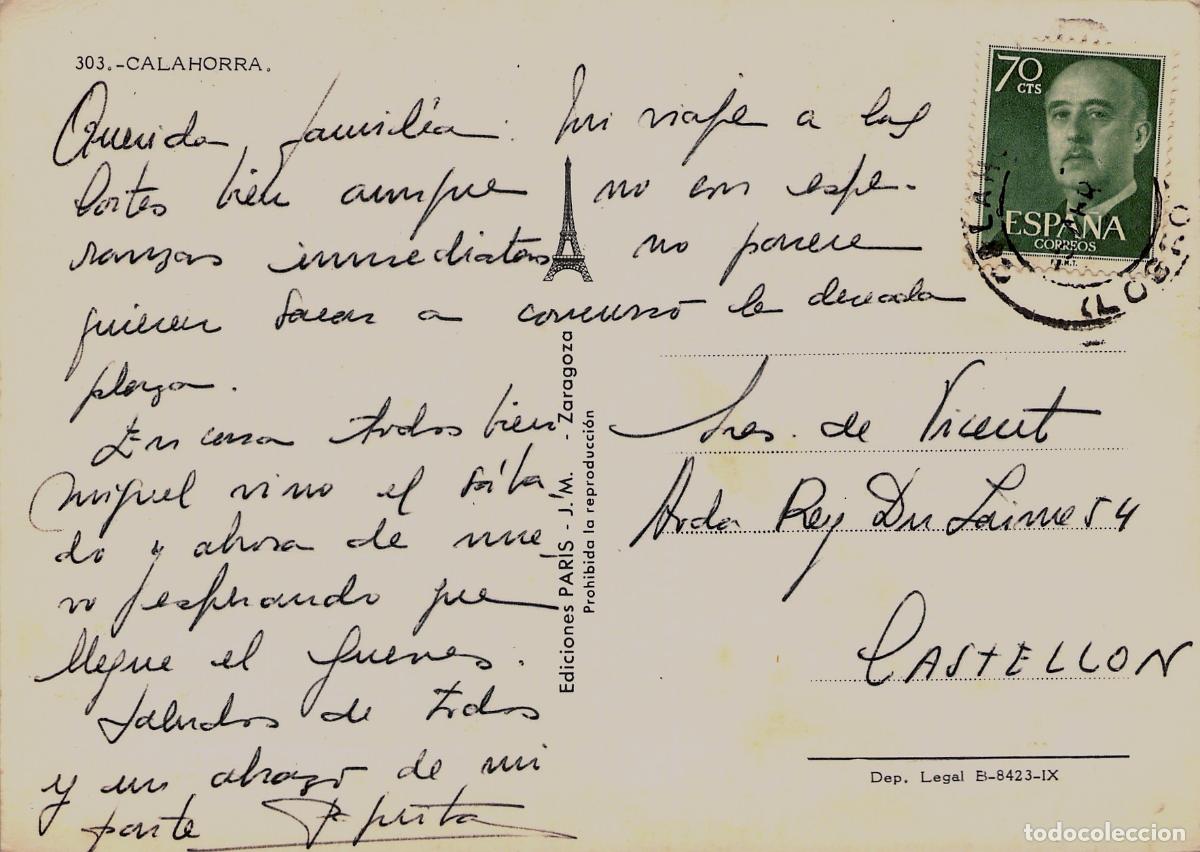 303.-CALAHORRA.
Querida familia: Mi viaje a las
Cortes bien aunque no con espe-
ranzas inmediatas no parece
quieran sacar a concurso la deseada
plaza.
En casa todos bien
Miguel vino el sába
do y ahora de nue
vo esperando que
llegue el jueves.
Saludos de todos
y un abrazo de mi
parte Pepita
Ediciones PARIS - J. M. - Zaragoza
Prohibida la reproducción
70
CTS
ESPAÑA
CORREOS
F.N.M.T.
CALAH.
(LOGRO
Sres. de Vicent
Avda Rey Dn Jaime 54
CASTELLON
Dep. Legal B-8423-IX
todocoleccion